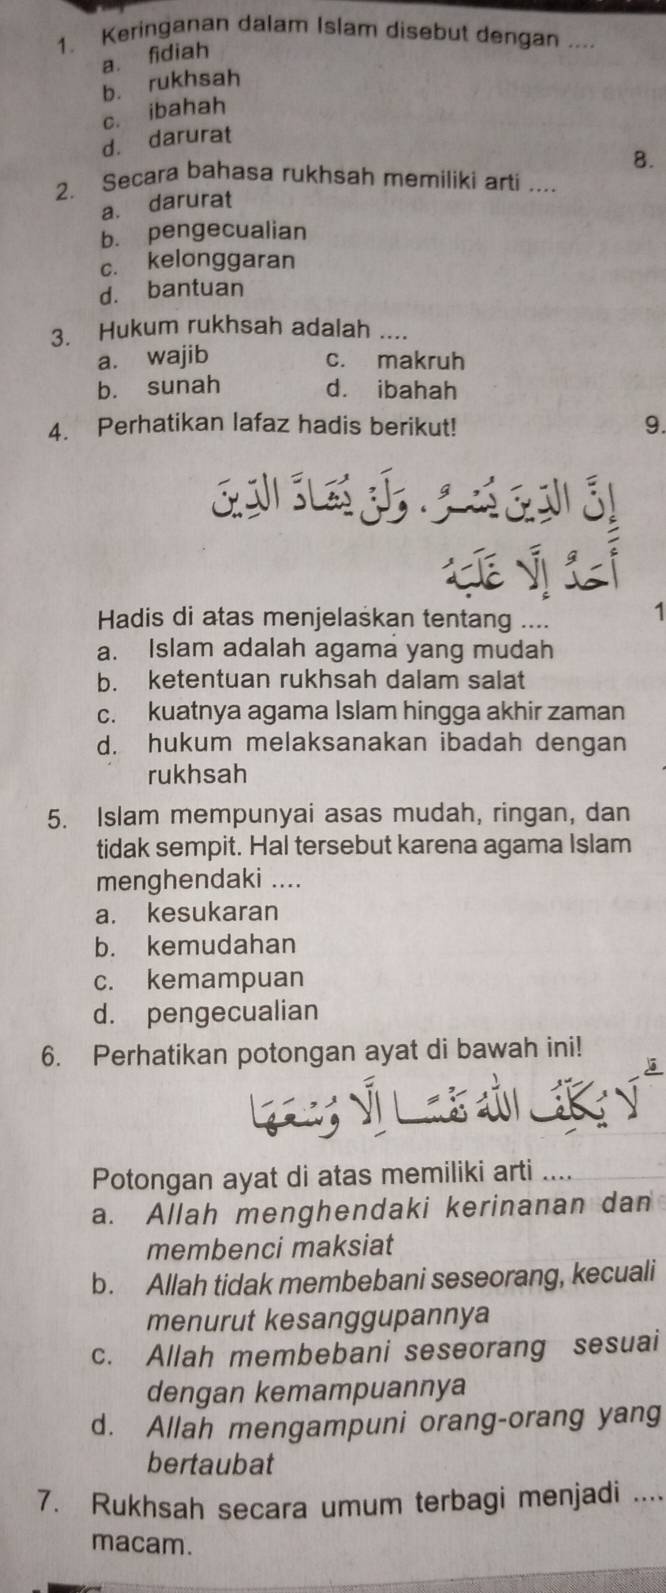 1. Keringanan dalam Islam disebut dengan ....
a. fidiah
b. rukhsah
c. ibahah
d. darurat
2. Secara bahasa rukhsah memiliki arti ....
a. darurat
b. pengecualian
c. kelonggaran
d. bantuan
3. Hukum rukhsah adalah ....
a. wajib c. makruh
b. sunah d. ibahah
4. Perhatikan lafaz hadis berikut!
إِنَّ الدِّيْنَ يُسْرٌ، وَلَنْ يُشَادَّ الدِّيْنَ
أَحَدٌ إِلَّا غَلَبَهُ
Hadis di atas menjelaskan tentang ....
a. Islam adalah agama yang mudah
b. ketentuan rukhsah dalam salat
c. kuatnya agama Islam hingga akhir zaman
d. hukum melaksanakan ibadah dengan
rukhsah
5. Islam mempunyai asas mudah, ringan, dan
tidak sempit. Hal tersebut karena agama Islam
menghendaki ....
a. kesukaran
b. kemudahan
c. kemampuan
d. pengecualian
6. Perhatikan potongan ayat di bawah ini!
لَا يُكَلِّفُ اللّٰهُ نَفْسًا اِلَّا وُسْعَهَا ۗ
Potongan ayat di atas memiliki arti ....
a. Allah menghendaki kerinanan dan
membenci maksiat
b. Allah tidak membebani seseorang, kecuali
menurut kesanggupannya
c. Allah membebani seseorang sesuai
dengan kemampuannya
d. Allah mengampuni orang-orang yang
bertaubat
7. Rukhsah secara umum terbagi menjadi ....
macam.
8.
9.
1